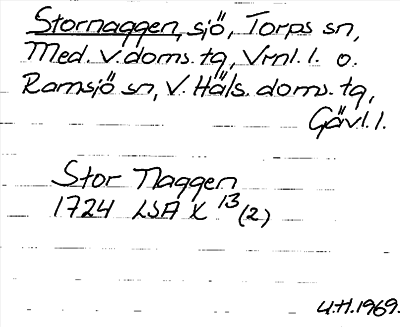 Stornaggen, sjö, Torps sn,
Med. v. doms. tg, Vrnl. l. o.
Ramsjö sn, V. Häls. doms. tg,
Gävl. l.
Stor Naggen
1724 LSA X 13 (2)
U.H. 1969.